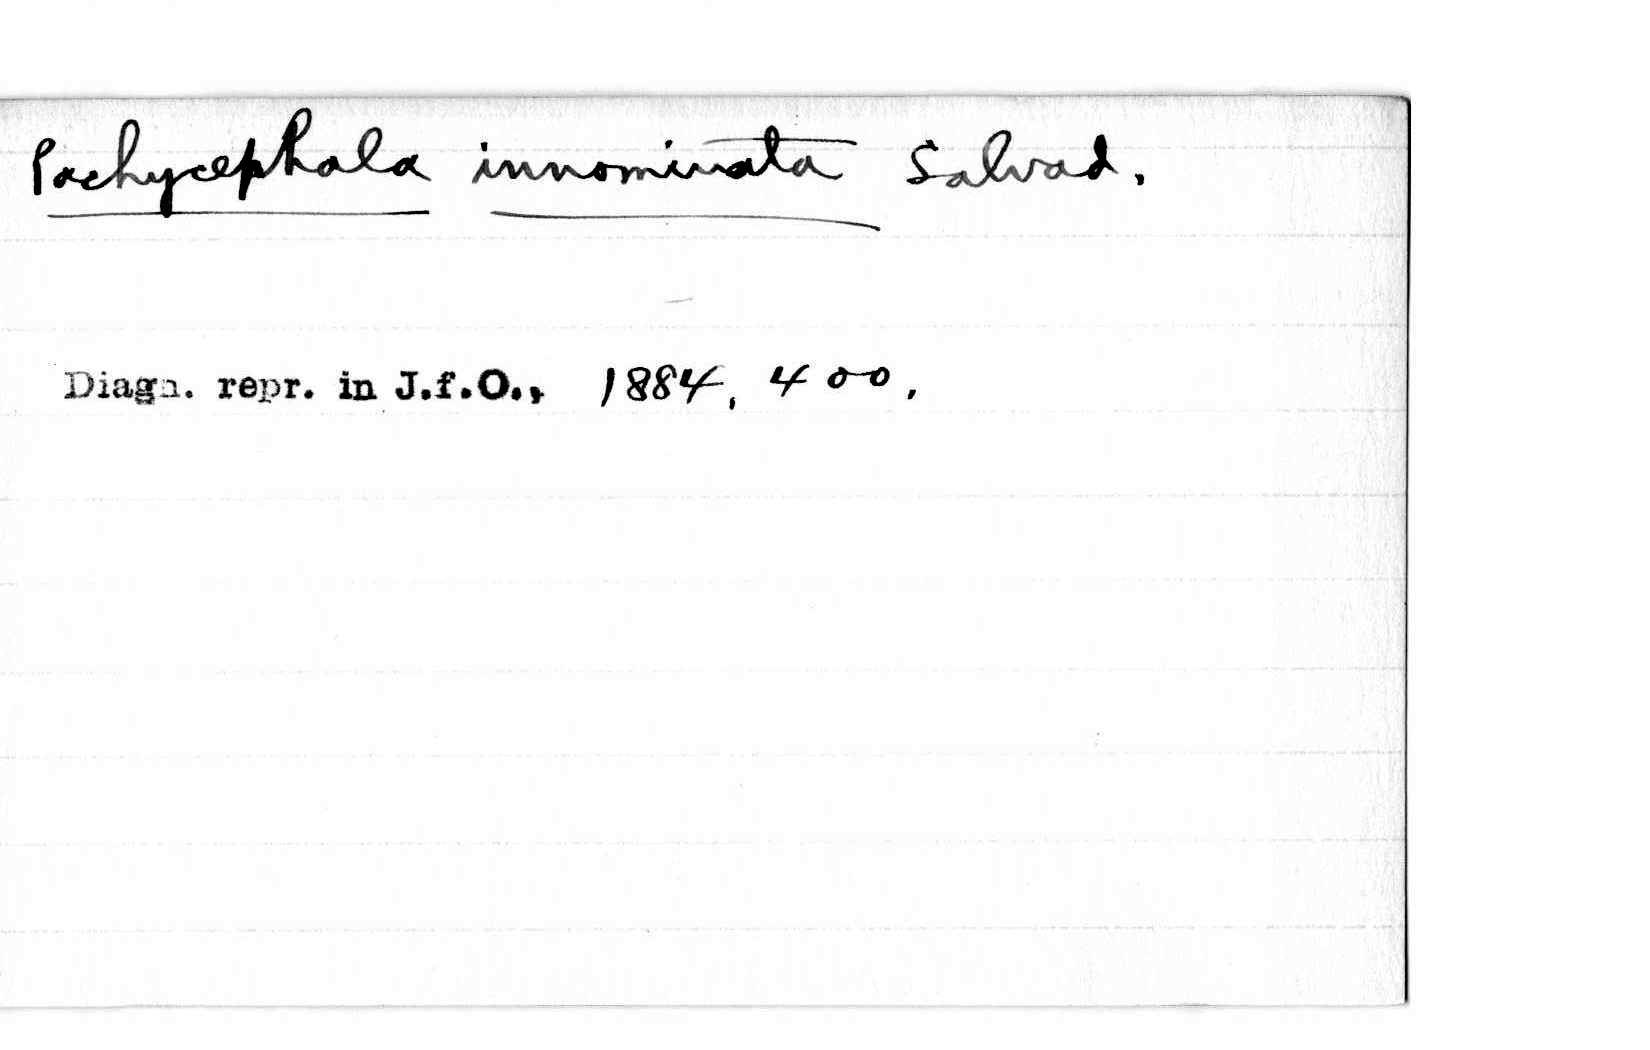 Pachycephala innominata Salvad.
Diagn. repr. in J.f.O., 1884, 400.